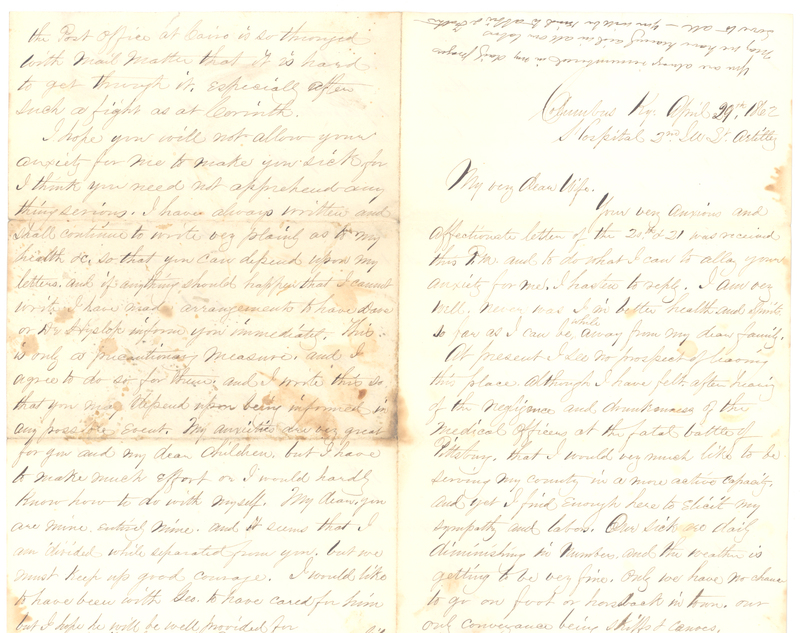 Columbus Ky. April 29th, 1862
Hospital 2nd Ill Lt. Artilry
My very dear Wife.
Your very anxious and
affectionate letter of the 20th & 21 was received
this P.M. and to do what I can to allay your
anxiety for me, I hasten to reply. I am very
well, never was I in better health and spirits
so far as I can be while away from my dear family.
At present I see no prospect of leaving
this place although I have felt after hearing
of the negligence and drunkenness of the
medical officers at the fatal battle of
Pittsburg, that I would very much like to be
serving my country in a more active capacity,
and yet I find enough here to elicit my
sympathy and labor. Our sick are daily
diminishing in numbers and the weather is
getting to be very fine. Only we have no chance
to go on foot or horseback in town, our
only conveyance being skiffs & canoes,
the Post Office at Cairo is so thronged
with Mail Matter that it is hard
to get through it, especially after
such a fight as at Corinth.
I hope you will not allow your
anxiety for me to make you sick for
I think you need not apprehend any
thing serious. I have always written and
shall continue to write very plainly as to my
health &c. so that you can depend upon my
letters. and if anything should happen that I cannot
write I have made arrangements to have
or Dr inform you immediately. This
is only a precautionary measure. and I
agree to do so for them. and I write this so
that you may depend upon being informed in
any possible event. My anxieties are very great
for you and my dear children. but I have
to make much effort or I would hardly
know how to do with myself. My dear, you
are mine, entirely mine. and it seems that I
am divided while separated from you. but we
must keep up good courage. I would like
to have been with Geo. to have cared for him
but I hope he will be well provided for
You are always remembered in my daily prayers
May we have
love to all